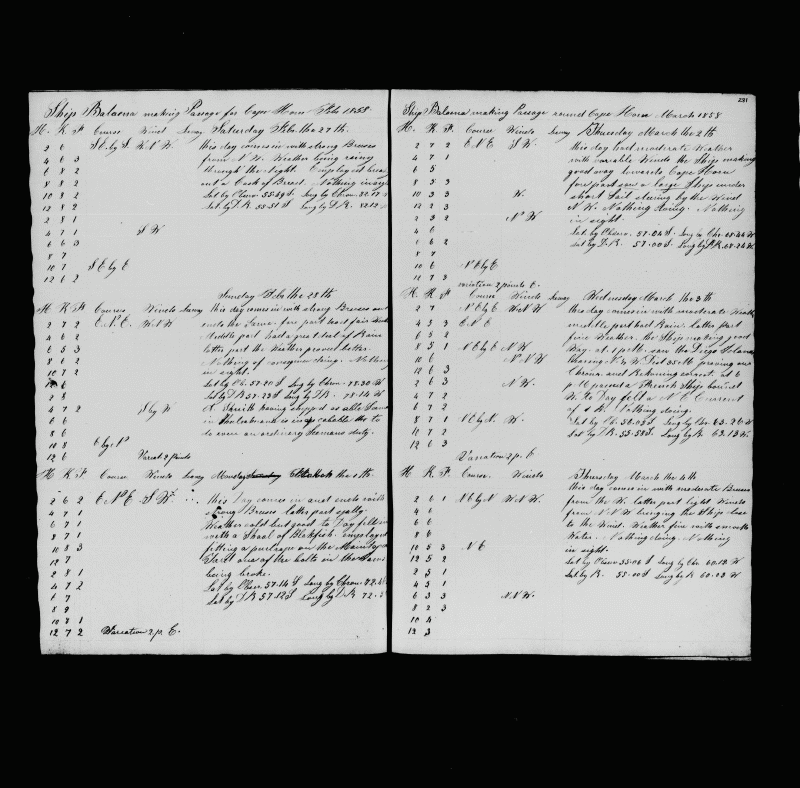 Ship Balaena making Passage for Cape Horn Feb 1858
H. K. F. Course Winds Leeway Saturday Feb the 27th
2 6 S E by S W N W this day comes in with strong Breeses
4 6 3 from N W. Weather being rainy
6 8 2 through the night. Employed break
8 8 2 out a Cask of Bread. Nothing in sight
10 8 2 Lat by Obser. 55-59 S Long by Chron.
12 8 2 Lat by D.R 55-51 S Long by D.R.
2 8 1
4 7 1 S W
6 6 3
8 7
10 7 S E by E
12 6 2
Sunday Feb the 28th
H K F Course Winds Leeway This day comes in with strong Breeses and
2 7 2 E.N.E. W.N.W ends the same. fore part had fair
4 6 2 Middle part had a great deal of Rain
6 5 3 latter part the Weather proved better.
8 6 2 Nothing of consequence doing. Nothing
10 7 2 in sight.
6 Lat by Ob. 57-10 S Long by Chron. 78-30 W
2 8 Lat by D.R 57-23 S Long by D.R. 78-14 W
4 7 2 S by W Smith having shipped as able Seaman
6 6 in incapable to
8 6 to even an ordinary Seamans duty.
10 8 E by N
12 6 Variat. 2 points
H K F Course Winds Leeway Monday the 1th.
2 6 2 E.N.E S W. this Day comes in and ends with
4 7 1 strong Breeses latter part squally.
6 7 1 Weather cold but good to Day fell in
8 7 1 with a Shoal of Blackfish. employed
10 8 3 fitting a purchase on the Main
12 7 one of the bolts in the
2 8 1 being broke.
4 7 2 Lat by Obser. 57-14 S Long by Chron. 72-
6 7 Lat by D.R 57-12 S Long by D.R 72-
8 9
10 7 1
12 7 2 Variation 2 p. E.
231
Ship Balaena making Passage round Cape Horn March 1858
H. K F. Course Winds Leeway Thursday March the 2th
2 7 2 E N E S W. this day had moderate Weather
4 7 1 with variable Winds the Ship making
6 5 good way towards Cape Horn
8 5 3 fore part saw a large Ship under
10 3 3 W. short Sail steering by the Wind
12 2 3 N W. Nothing doing. Nothing
2 3 2 N W in sight.
4 6 Lat by Obser. 57-04 S. Long by Chr. 68-44 W
1 6 2 Lat by D.R. 57-00 S Long by D.R. 68-24 W.
8 7
10 6 N E by E
12 7 3 variation 2 points E.
H. K. F Course Winds Leeway Wednesday March the 3th
2 7 N E by E W N W this day comes in with moderate Weather
4 5 3 E N E middle part had Rain. latter part
6 6 2 fine Weather. the Ship making good
8 5 1 N E by E N W Way. at 1 p M. saw the Diego
10 6 N N W bearing N W Dist 35 M proving our
12 6 3 Chron. and Reckoning correct. at 6
2 6 3 N W. p. M passed a French Ship bound
4 7 2 W. to Day felt a N E Current
6 7 2 of Nothing doing.
8 7 1 N E by N. W. Lat by Ob. 56-03 S. Long by Chr. 63-26 W
10 7 2 Lat by D.R. 55-58 S. Long by R 63-13 W.
12 6 3
Variation 2 p. E
H K F Course Winds Thursday March the 4th
this day comes in with moderate Breeses
2 6 1 N E by N W N W. from the W. latter part light Winds
4 6 from N N W bringing the Ship close
6 6 to the Wind. Weather fine with smooth
8 6 Water. Nothing doing. Nothing
10 5 3 N E in sight.
12 5 2 Lat by Obser 55-06 S Long by Chr. 60-12 W
2 5 1 Lat by R. 55-00 S Long by R 60-02 W
4 5 1
6 3 3 N.W.
8 2 3
10 4
12 3